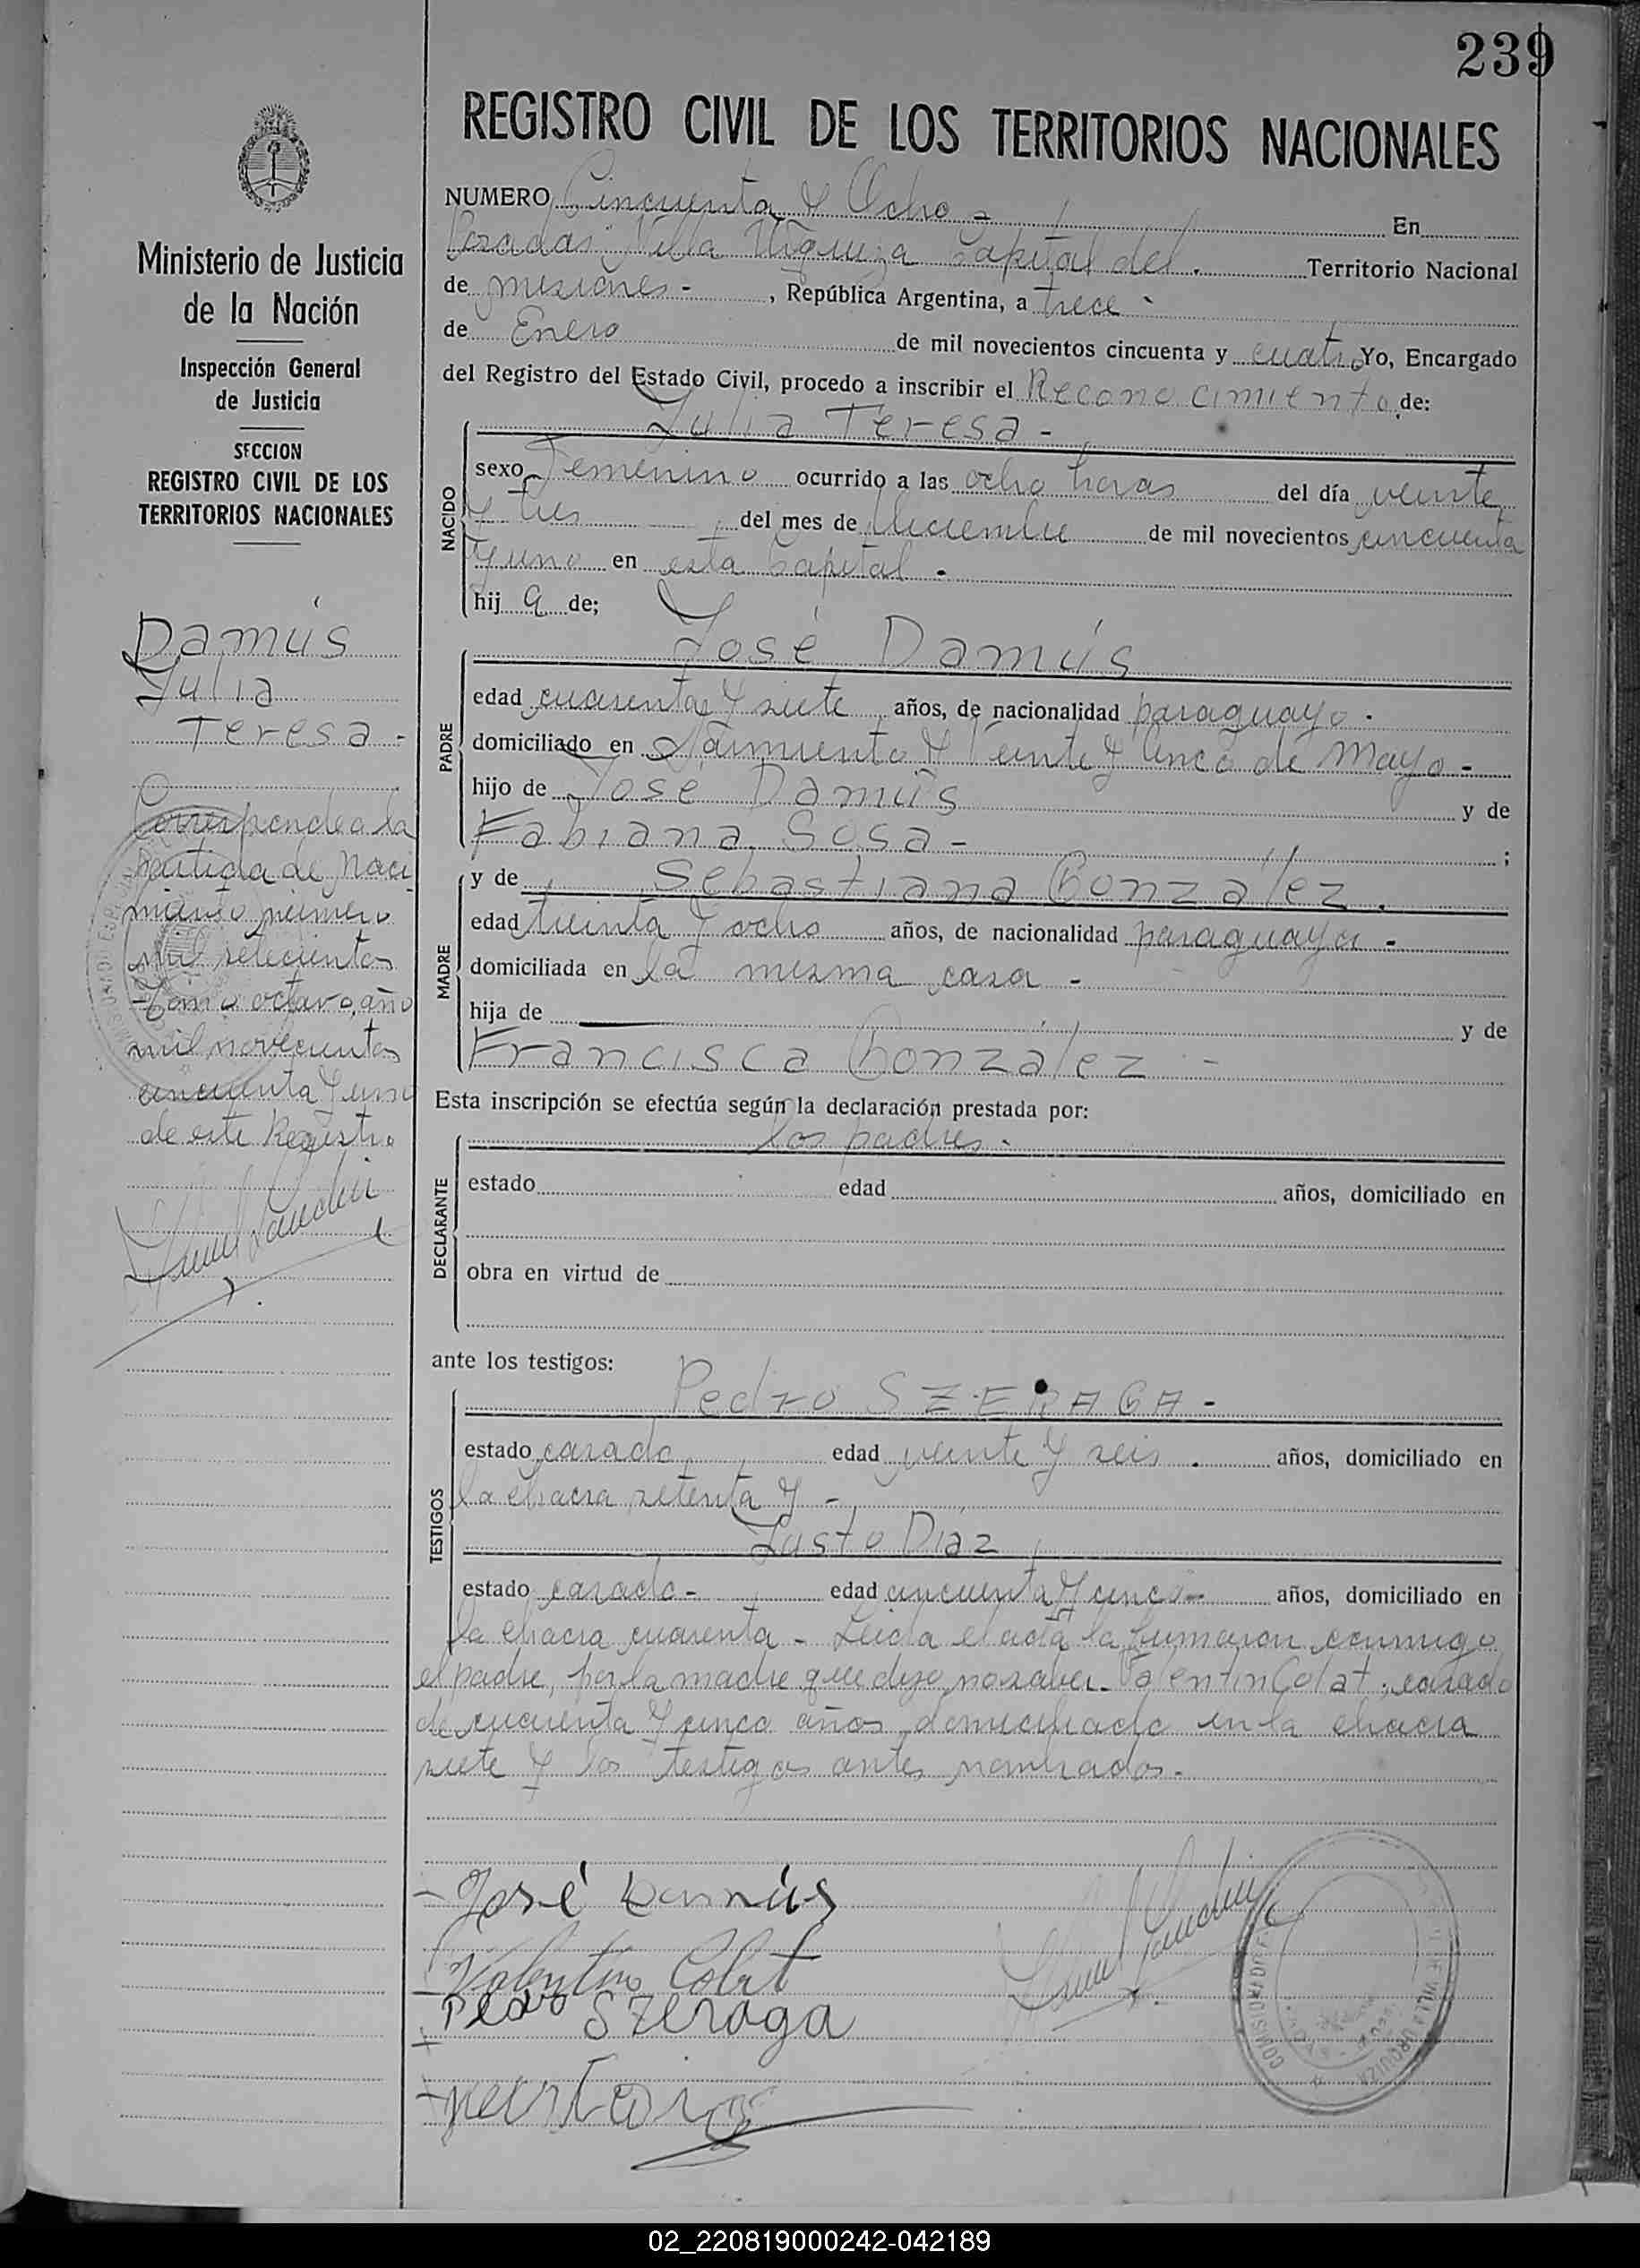 239
REGISTRO CIVIL DE LOS TERRITORIOS NACIONALES
Ministerio de Justicia
de la Nación
Inspección General
de Justicia
SECCION
REGISTRO CIVIL DE LOS
TERRITORIOS NACIONALES
Damús
Julia
Teresa -
Corresponde a la
partida de Naci
miento número
mil setecientos
Tomo octavo, año
mil novecientos
cincuenta y uno
de este Registro
NUMERO Cincuenta y Ocho - En
Posadas Villa Urquiza Capital del. Territorio Nacional
de misiones - , República Argentina, a trece -
de Enero de mil novecientos cincuenta y cuatro Yo, Encargado
del Registro del Estado Civil, procedo a inscribir el Reconocimiento de:
Julia Teresa -
NACIDO
sexo Femenino ocurrido a las ocho horas del día veinte
y tres del mes de Diciembre de mil novecientos cincuenta
y uno en esta Capital.
hij a de;
José Damús
PADRE
edad cuarenta y siete años, de nacionalidad paraguayo.
domiciliado en Sarmiento y Veinte y Cinco de Mayo -
hijo de José Damús y de
Fabiana Sosa - ;
y de Sebastiana González.
MADRE
edad treinta y ocho años, de nacionalidad paraguaya -
domiciliada en la misma casa -
hija de — y de
Francisca González -
Esta inscripción se efectúa según la declaración prestada por:
los padres.
DECLARANTE
estado edad años, domiciliado en
obra en virtud de
ante los testigos:
Pedro SZERAGA -
TESTIGOS
estado casado edad veinte y seis. años, domiciliado en
la chacra setenta y -
Justo Díaz
estado casado - edad cincuenta y cinco - años, domiciliado en
la chacra cuarenta - Leída el acta la firmaron conmigo
el padre, por la madre que dijo no saber Valentin Colat, casado
de cuarenta y cinco años domiciliado en la chacra
siete y los testigos antes nombrados.
- José Damús
- Valentin Colat
Pedro Szeraga
02_220819000242-042189